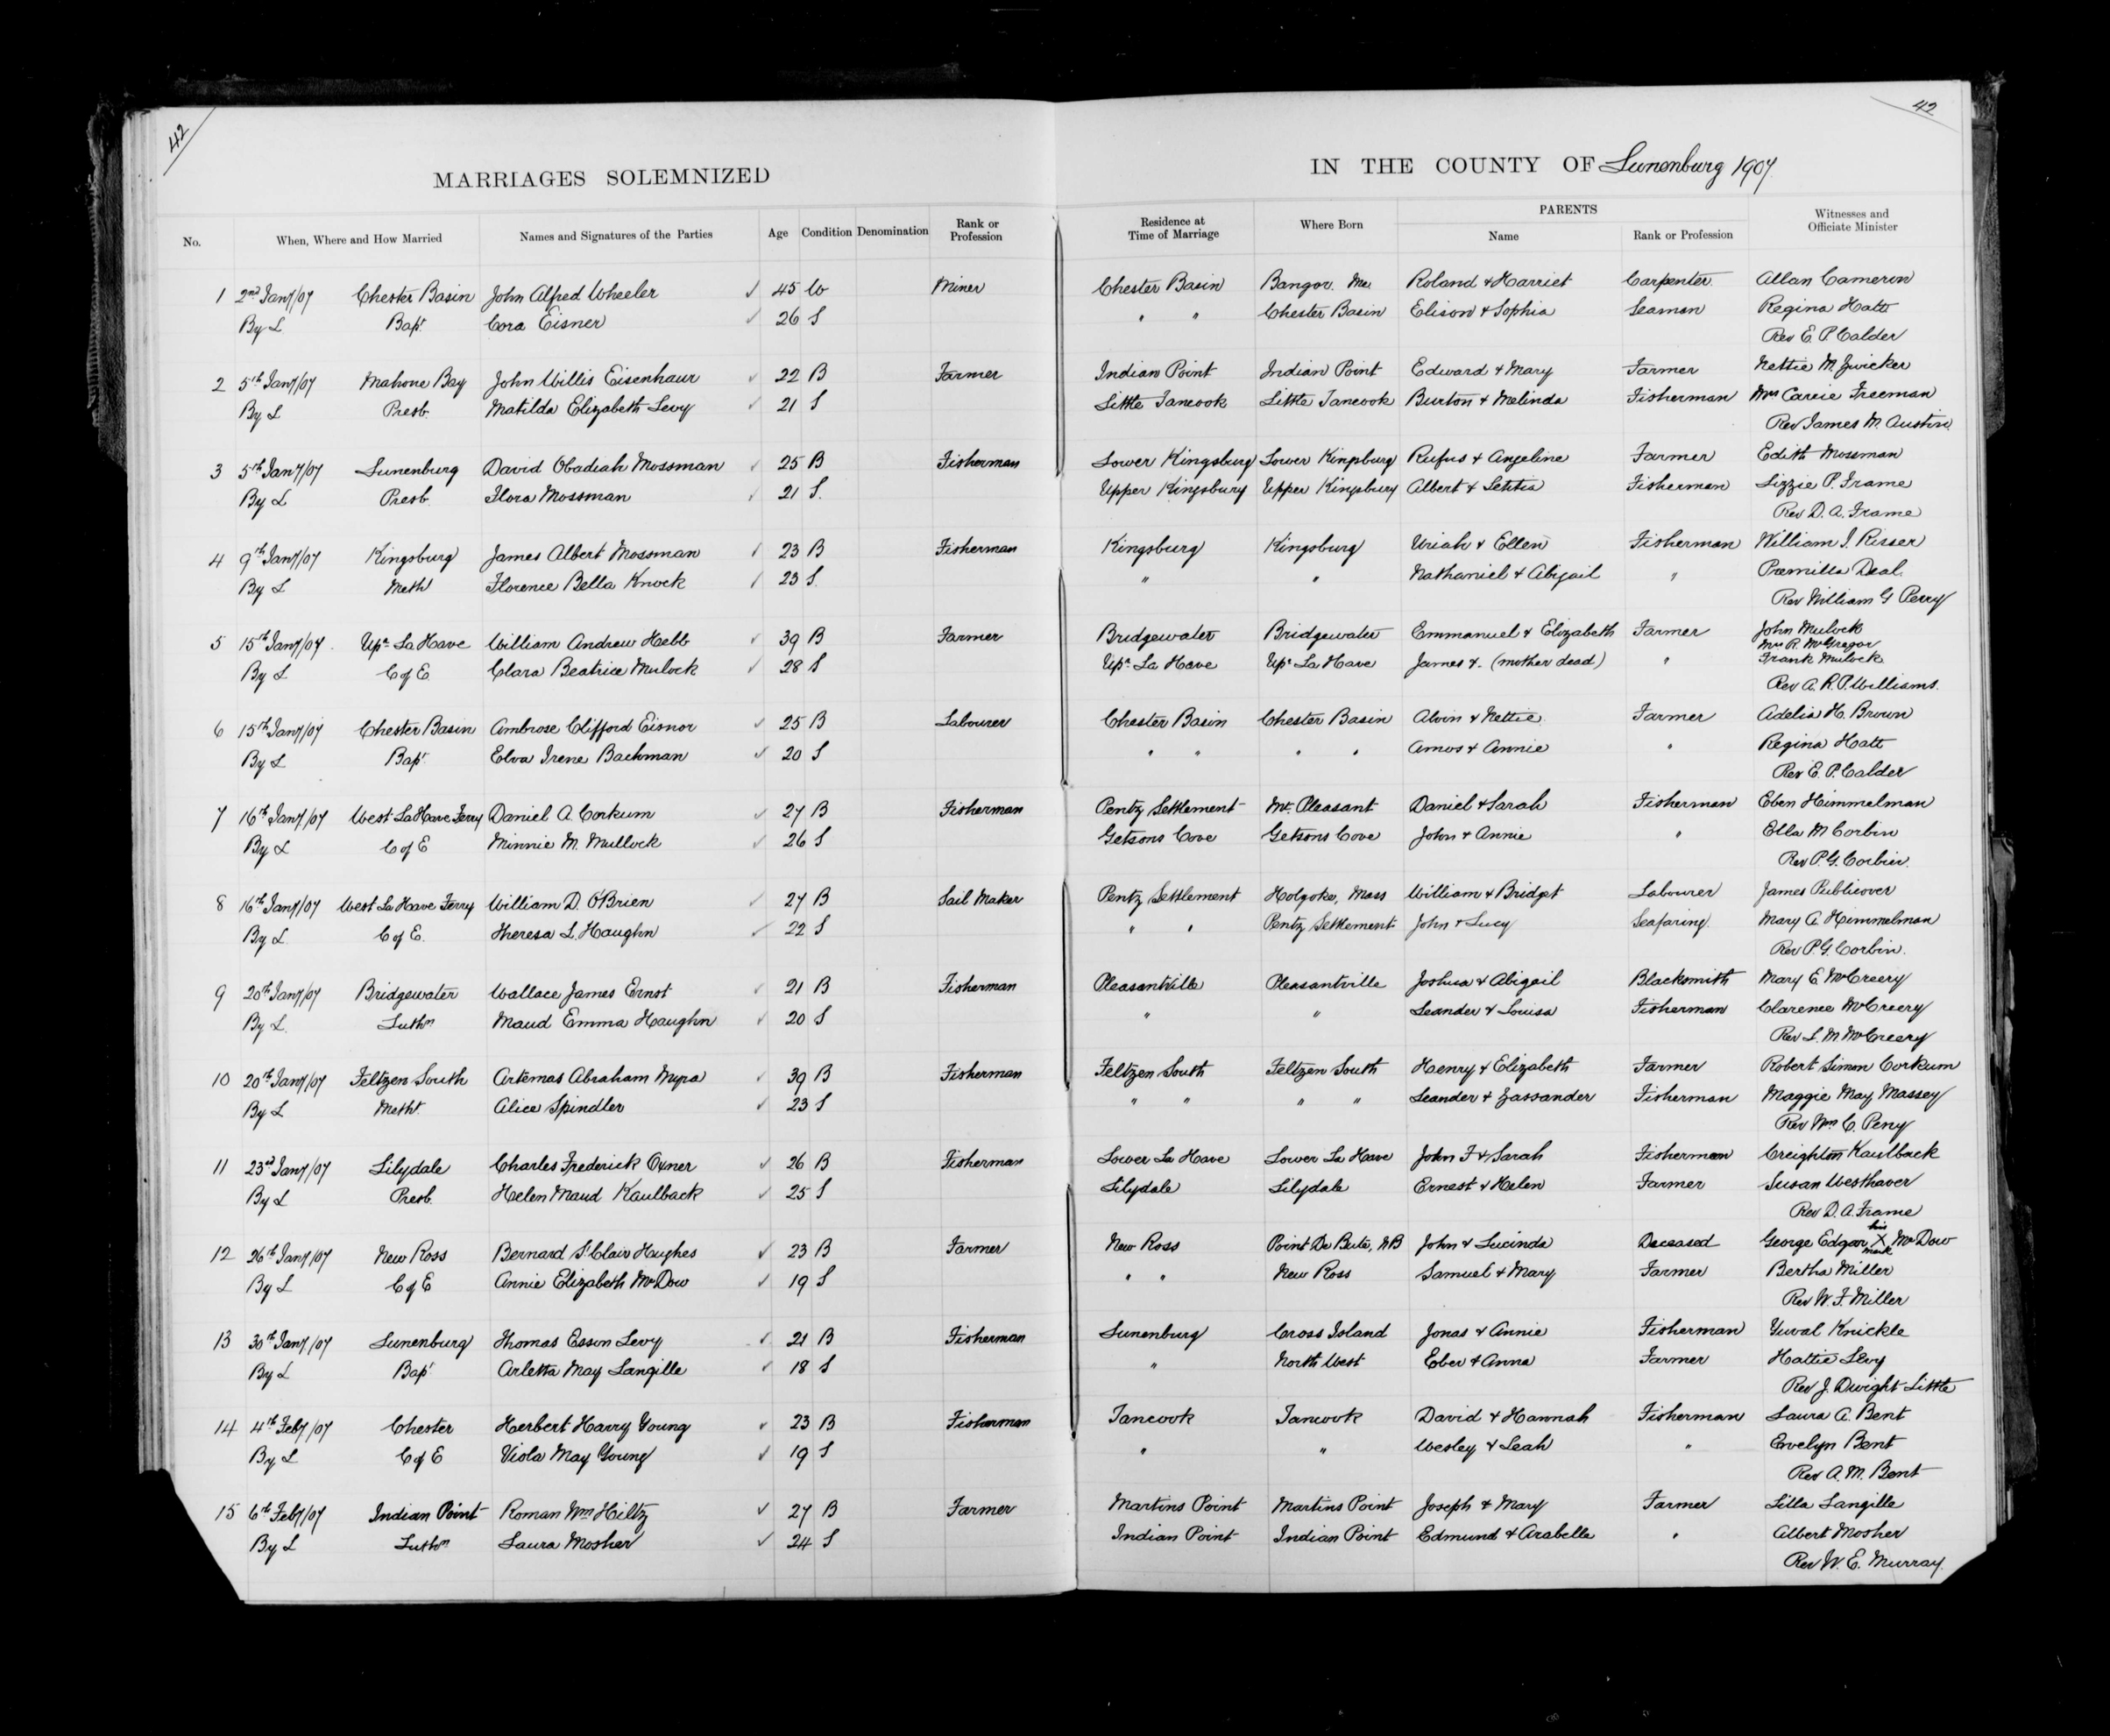 42
42
MARRIAGES SOLEMNIZED IN THE COUNTY OF Lunenburg 1907.
No. When, Where and How Married Names and Signatures of the Parties Age Condition Denomination Rank or Profession Residence at Time of Marriage Where Born PARENTS Name Rank or Profession Witnesses and Officiate Minister
1 2nd Jany/07 Chester Basin John Alfred Wheeler ✓ 45 W Miner Chester Basin Bangor. Me. Roland & Harriet Carpenter. Allan Cameron
By L Bapt. Cora Eisner ✓ 26 S " " Chester Basin Elison & Sophia Seaman Regina Hatt
Rev E. P. Calder
2 5th Jany/07 Mahone Bay John Willis Eisenhaur ✓ 22 B Farmer Indian Point Indian Point Edward & Mary Farmer Nettie M. Zwicker
By L Presb. Matilda Elizabeth Levy ✓ 21 S Little Tancook Little Tancook Burton & Melinda Fisherman Mrs Carrie Freeman
Rev James M. Austin.
3 5th Jany/07 Lunenburg David Obadiah Mossman ✓ 25 B Fisherman Lower Kingsburg Lower Kingsburg Rufus & Angeline Farmer Edith Mossman
By L Presb. Flora Mossman ✓ 21 S. Upper Kingsburg Upper Kingsburg Albert & Letitia Fisherman Lizzie P. Frame
Rev D. A. Frame
4 9th Jany/07 Kingsburg James Albert Mossman ✓ 23 B Fisherman Kingsburg Kingsburg Uriah & Ellen Fisherman William I. Risser
By L Meth Florence Bella Knock ✓ 23 S. " " Nathaniel & Abigail " Premilla Deal.
Rev William G Perry
5 15th Jany/07. Upr La Have William Andrew Hebb ✓ 39 B Farmer Bridgewater Bridgewater Emmanuel & Elizabeth Farmer John Mulock
Mrs R. McGregor
By L C of E. Clara Beatrice Mulock ✓ 28 S Upr La Have Upr La Have James &. (mother dead) " Frank Mulock
Rev A. R. P. Williams.
6 15th Jany/07 Chester Basin Ambrose Clifford Eisnor ✓ 25 B Labourer Chester Basin Chester Basin Alvin & Nettie. Farmer Adelia H. Brown
By L Bapt. Elva Irene Bachman ✓ 20 S " " " " Amos & Annie " Regina Hatt
Rev E. P. Calder
7 16th Jany/07 West La Have Ferry Daniel A Corkum ✓ 27 B Fisherman Pentz Settlement Mt. Pleasant Daniel & Sarah Fisherman Eben Himmelman
By L C of E Minnie M. Mullock ✓ 26 S Getsons Cove Getsons Cove John & Annie " Ella M Corbin
Rev P. G. Corbin.
8 16th Jany/07 West La Have Ferry William D. O'Brien ✓ 27 B Sail Maker Pentz Settlement Holyoke, Mass William & Bridget Labourer James Publicover
By L. C of E. Theresa L. Haughn ✓ 22 S " " Pentz Settlement John & Lucy Seafaring. Mary A. Himmelman
Rev P. G. Corbin.
9 20th Jany/07 Bridgewater Wallace James Ernst ✓ 21 B Fisherman Pleasantville Pleasantville Joshua & Abigail Blacksmith Mary E. McCreery
By L. Luthn Maud Emma Haughn ✓ 20 S " " Leander & Louisa Fisherman Clarence McCreery
Rev L. M. McCreery
10 20th Jany/07 Feltzen South Artemas Abraham Myra ✓ 39 B Fisherman Feltzen South Feltzen South Henry & Elizabeth Farmer Robert Simon Corkum
By L Metht. Alice Spindler ✓ 23 S " " " " Leander & Zassander Fisherman Maggie May Massey
Rev Wm C. Perry
11 23rd Jany/07 Lilydale Charles Frederick Oxner ✓ 26 B Fisherman Lower La Have Lower La Have John F & Sarah Fisherman Creighton Kaulback
By L Presb. Helen Maud Kaulback ✓ 25 S Lilydale Lilydale Ernest & Helen Farmer Susan Westhaver
Rev D. A. Frame
12 26th Jany/07 New Ross Bernard St. Clair Hughes ✓ 23 B Farmer New Ross Point De Bute, NB John & Lucinda Deceased George Edgar his X mark McDow
By L C of E Annie Elizabeth McDow ✓ 19 S " " New Ross Samuel & Mary Farmer Bertha Miller
Rev W. F. Miller
13 30th Jany/07 Lunenburg Thomas Esson Levy ✓ 21 B Fisherman Lunenburg Cross Island Jonas & Annie Fisherman Yuval Knickle
By L Bapt Arletta May Langille ✓ 18 S " North West Eber & Anna Farmer Hattie Levy
Rev J. Dwight Little
14 4th Feby/07 Chester Herbert Harry Young ✓ 23 B Fisherman Tancook Tancook David & Hannah Fisherman Laura A. Bent
By L C of E Viola May Young ✓ 19 S " " Wesley & Leah " Evelyn Bent
Rev A. M. Bent
15 6th Feby/07 Indian Point Roman Wm Hiltz ✓ 27 B Farmer Martins Point Martins Point Joseph & Mary Farmer Lilla Langille
By L Luthn Laura Mosher ✓ 24 S Indian Point Indian Point Edmund & Arabella " Albert Mosher
Rev W. E. Murray.